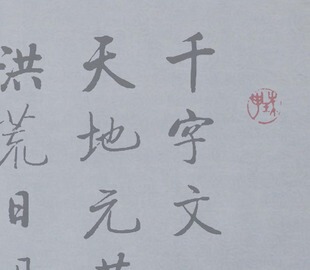 千字文
天地元黃
洪荒日月